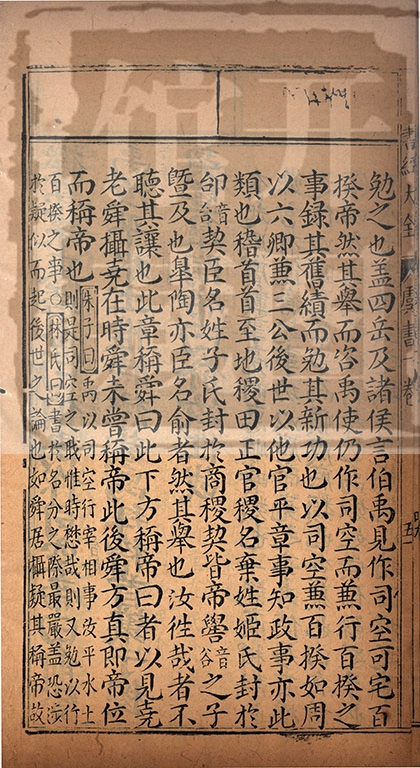 書經大全 虞書一卷
勉之也蓋四岳及諸侯言伯禹見作司空可宅百
揆帝然其舉而咨禹使仍作司空而兼行百揆之
事録其舊績而勉其新功也以司空兼百揆如周
以六卿兼三公後世以他官平章事知政事亦此
類也稽首首至地稷田正官稷名棄姓姬氏封於
邰音台契臣名姓子氏封於商稷契皆帝嚳音谷之子
曁及也皐陶亦臣名俞者然其舉也汝徃哉者不
聽其讓也此章稱舜曰此下方稱帝曰者以見堯
老舜攝堯在時舜未嘗稱帝此後舜方真即帝位
而稱帝也朱子曰禹以司空行宰相事汝平水土
則是司空之職惟時懋哉則又勉以行
百揆之事○林氏曰書於名分之際最嚴蓋恐涉
於疑似而起後世之論也如舜居攝疑其稱帝故